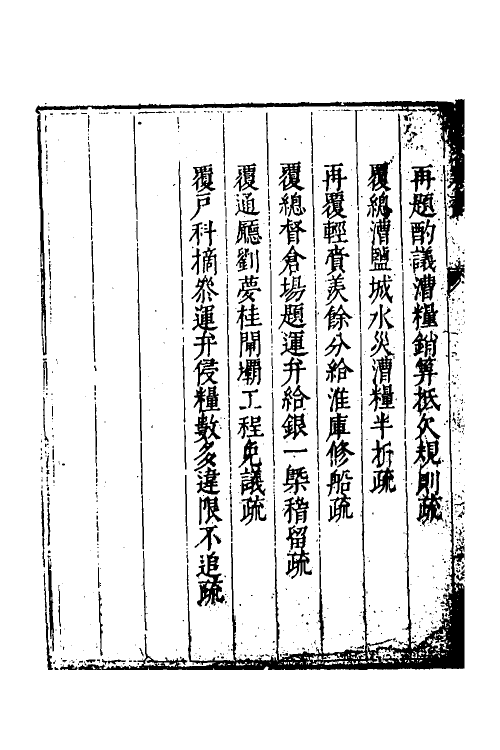 再題酌議漕糧銷算抵欠規則疏
覆總漕鹽城水災漕糧半折疏
再覆輕賫羨餘分給淮庫修船疏
覆總督倉場題運弁給銀一槩稽留疏
覆通廳劉夢桂閘壩工程免議疏
覆戶科摘叅運弁侵糧數多違限不追疏